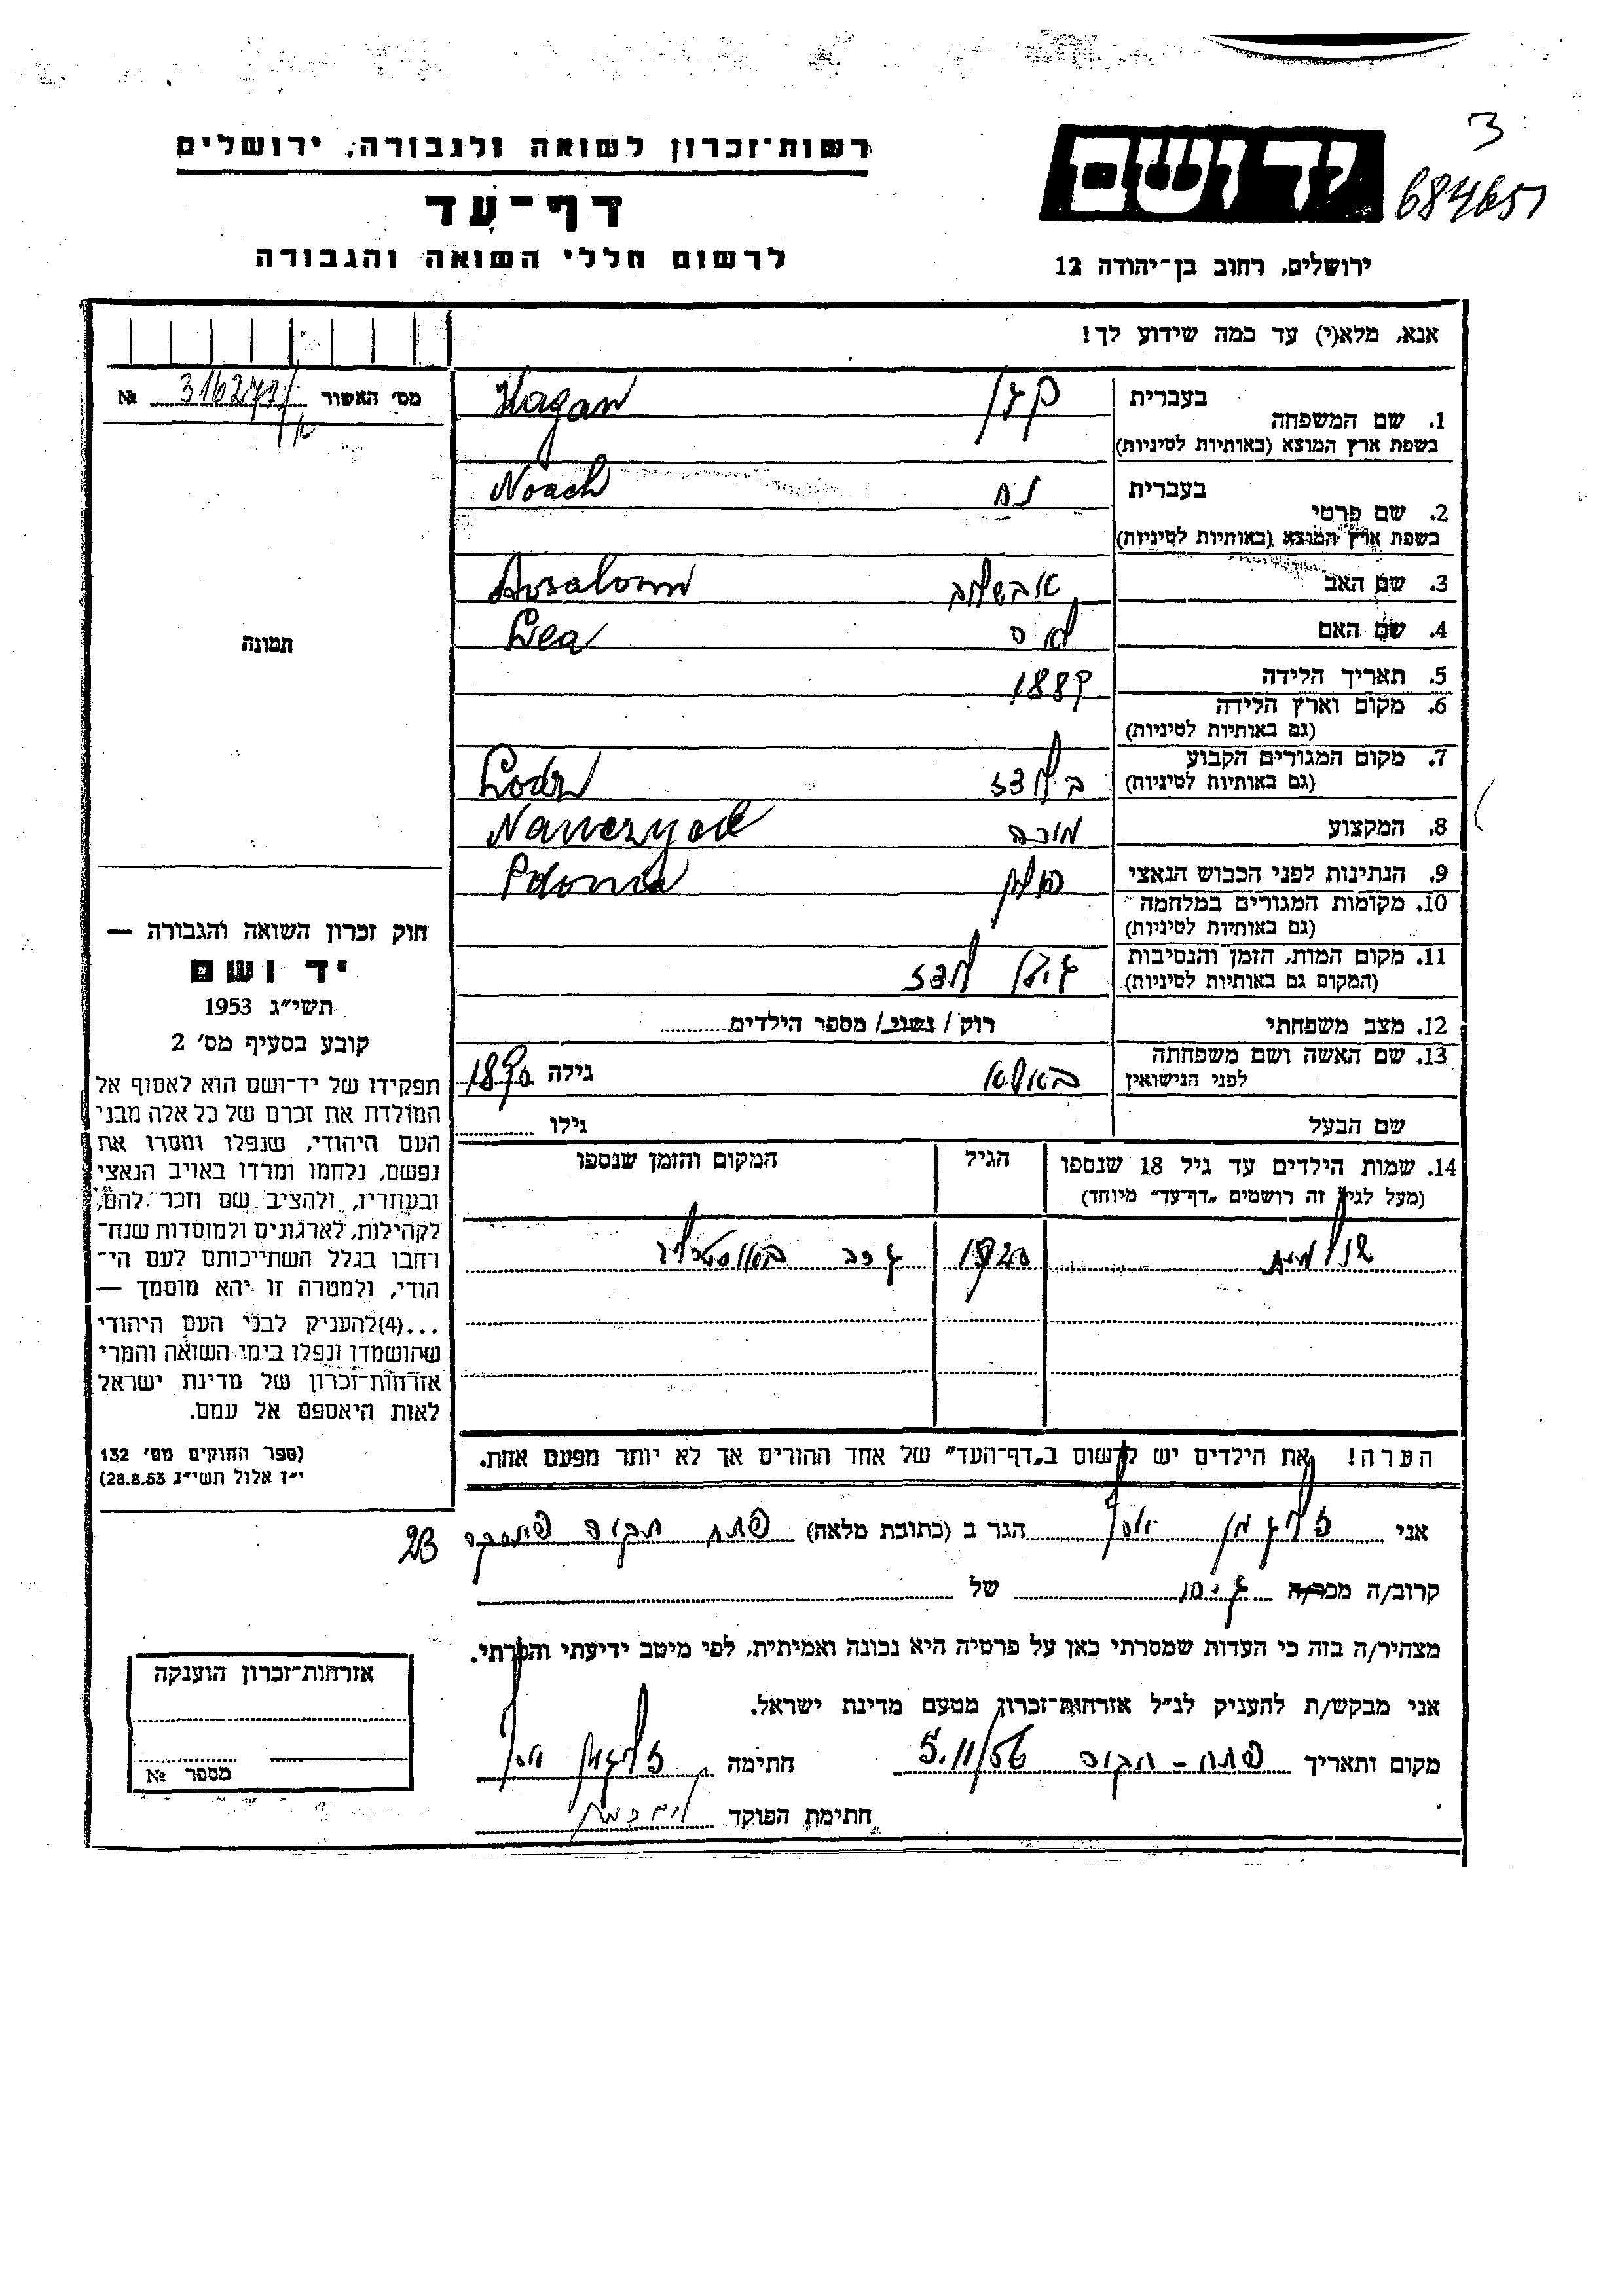 3
684651
רשות־זכרון לשואה ולגבורה, ירושלים
יד ושם
דף־עד
לרשום חללי השואה והגבורה
ירושלים, רחוב בן־יהודה 12
אנא, מלא(י) עד כמה שידוע לך!
מס׳ האשור № 316271/
1. שם המשפחה בעברית קגן Kagan
בשפת ארץ המוצא (באותיות לטיניות)
2. שם פרטי בעברית נח Noach
בשפת ארץ המוצא (באותיות לטיניות)
3. שם האב אבשלום Avsalom
4. שם האם לאה Lea
5. תאריך הלידה 1887
6. מקום וארץ הלידה
(גם באותיות לטיניות)
7. מקום המגורים הקבוע בלודז Lodz
(גם באותיות לטיניות)
8. המקצוע מורה
9. הנתינות לפני הכבוש הנאצי פולין Polonia
10. מקומות המגורים במלחמה
(גם באותיות לטיניות)
11. מקום המות, הזמן והנסיבות לודז
(המקום גם באותיות לטיניות)
12. מצב משפחתי רוק / נשוי / מספר הילדים
13. שם האשה ושם משפחתה גילה
לפני הנישואין
שם הבעל גילו
14. שמות הילדים עד גיל 18 שנספו הגיל המקום והזמן שנספו
(מעל לגיל זה רושמים „דף־עד״ מיוחד)
שולמית 1920
הערה! את הילדים יש לרשום ב„דף־העד״ של אחד ההורים אך לא יותר מפעם אחת.
אני זליגמן יוסף הגר ב (כתובת מלאה) פתח תקוה 23
קרוב/ה מכר/ה של
מצהיר/ה בזה כי העדות שמסרתי כאן על פרטיה היא נכונה ואמיתית, לפי מיטב ידיעתי והכרתי.
אני מבקש/ת להעניק לנ״ל אזרחות־זכרון מטעם מדינת ישראל.
מקום ותאריך פתח - תקוה 5.11/56 חתימה זליגמן יוסף
חתימת הפוקד
תמונה
חוק זכרון השואה והגבורה —
יד ושם
תשי״ג 1953
קובע בסעיף מס׳ 2
תפקידו של יד־ושם הוא לאסוף אל
המולדת את זכרם של כל אלה מבני
העם היהודי, שנפלו ומסרו את
נפשם, נלחמו ומרדו באויב הנאצי
ובעוזריו, ולהציב שם וזכר להם,
לקהילות, לארגונים ולמוסדות שנח־
רבו בגלל השתייכותם לעם הי־
הודי, ולמטרה זו יהא מוסמך —
...(4)להעניק לבני העם היהודי
שהושמדו ונפלו בימי השואה והמרי
אזרחות־זכרון של מדינת ישראל
לאות היאספם אל עמם.
(ספר החוקים מס׳ 132
י״ז אלול תשי״ג 28.8.53)
אזרחות־זכרון הוענקה
מספר №